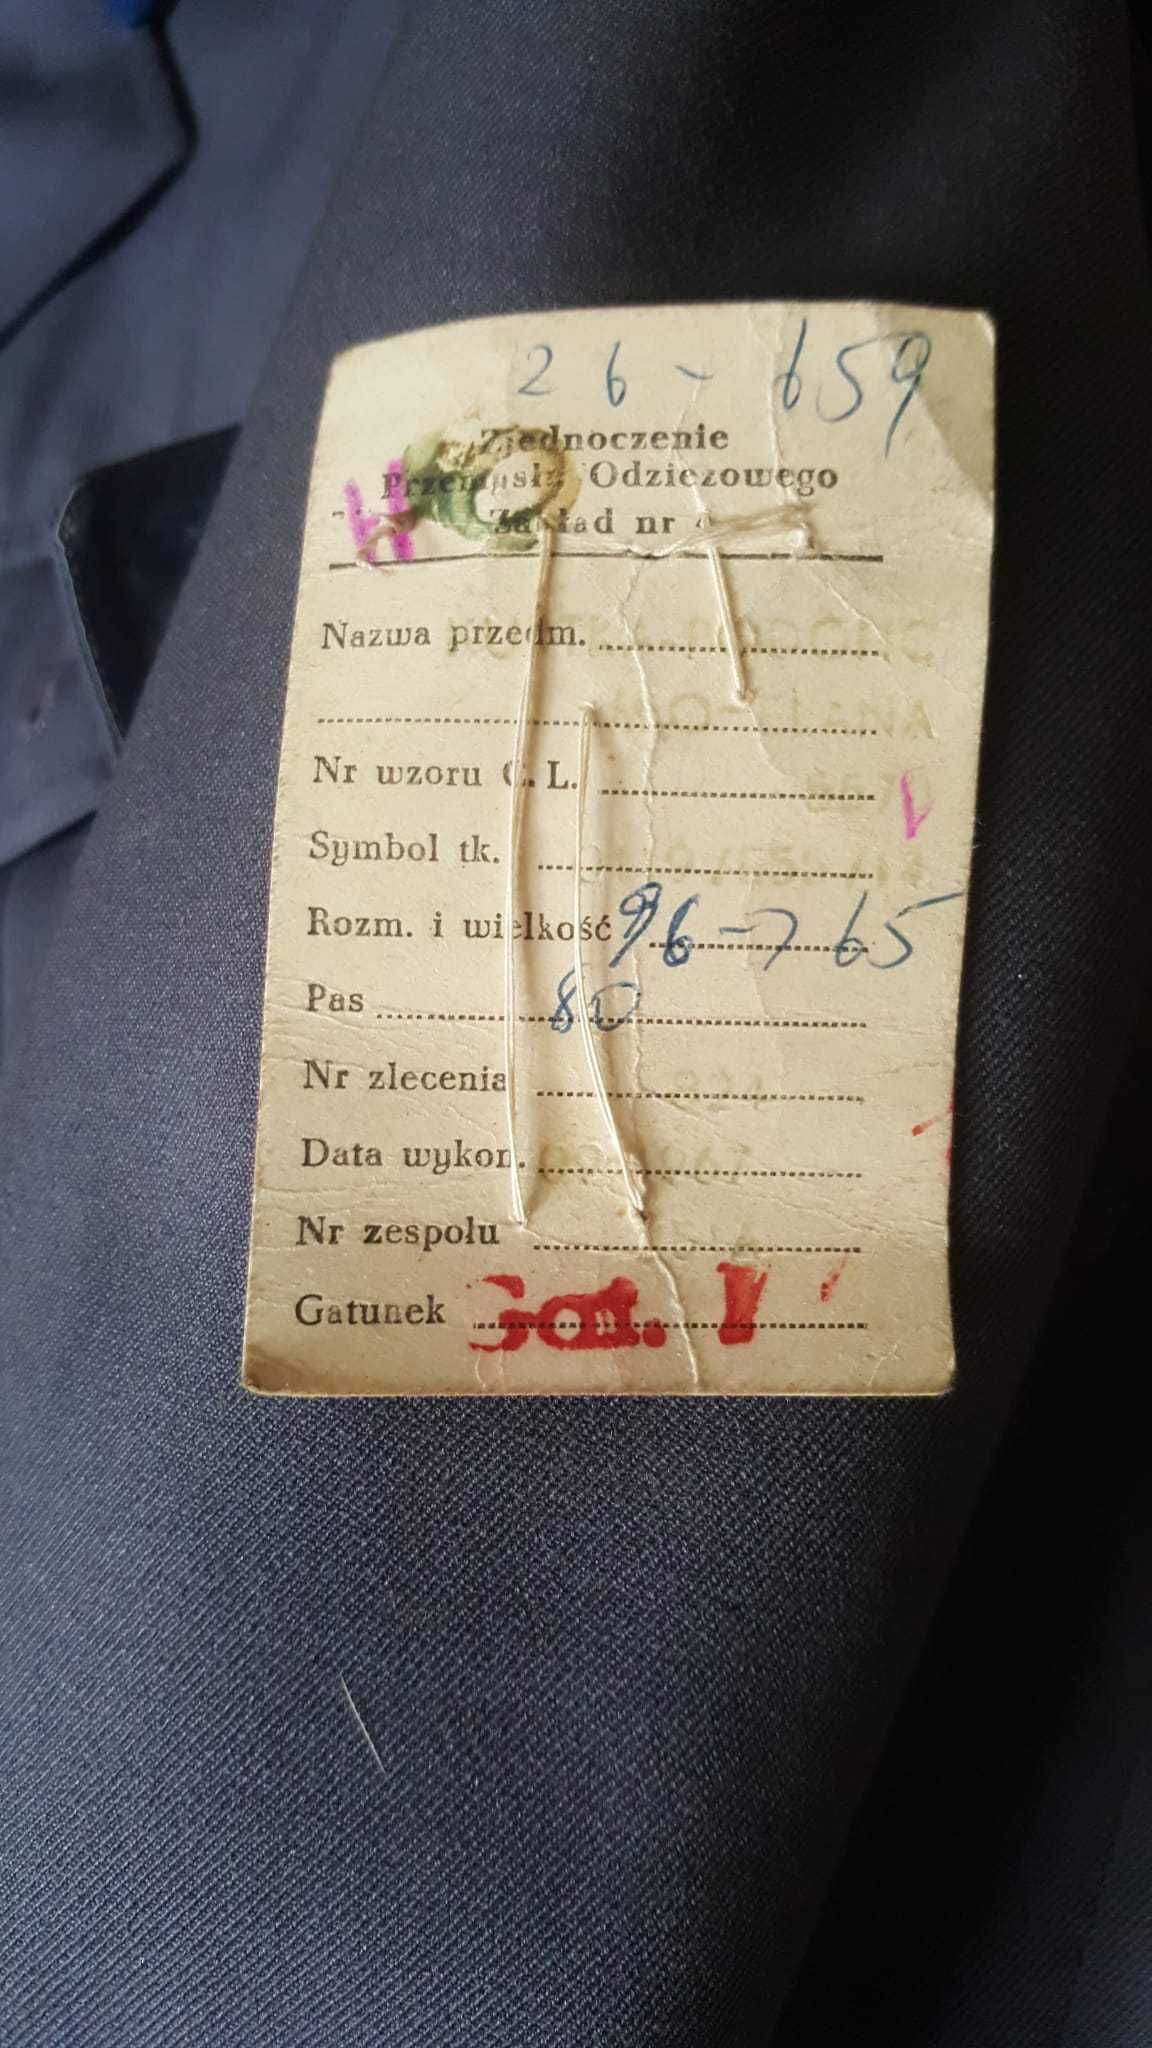 26-659
Zjednoczenie
Przemysłu Odzieżowego
Zakład nr
H
Nazwa przedm.
Nr wzoru C. L.
1
Symbol tk.
Rozm. i wielkość 96-765
Pas 80
Nr zlecenia
Data wykon.
Nr zespołu
Gatunek Gat. I